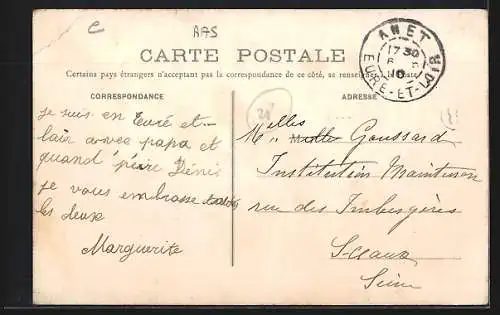 e
AAS
CARTE POSTALE
Certains pays étrangers n'acceptant pas la correspondance de ce côté, se renseigner à la Poste
CORRESPONDANCE
je suis en Euré et-
loir avec papa et
quand père Dénis
je vous embrasse toutes
les deux
Marguerite
ADRESSE
ANET
17 30
6
10
EURE-ET-LOIR
Melles
Goussard
Institution Maintenon
rue des Imbergères
Sceaux
Seine